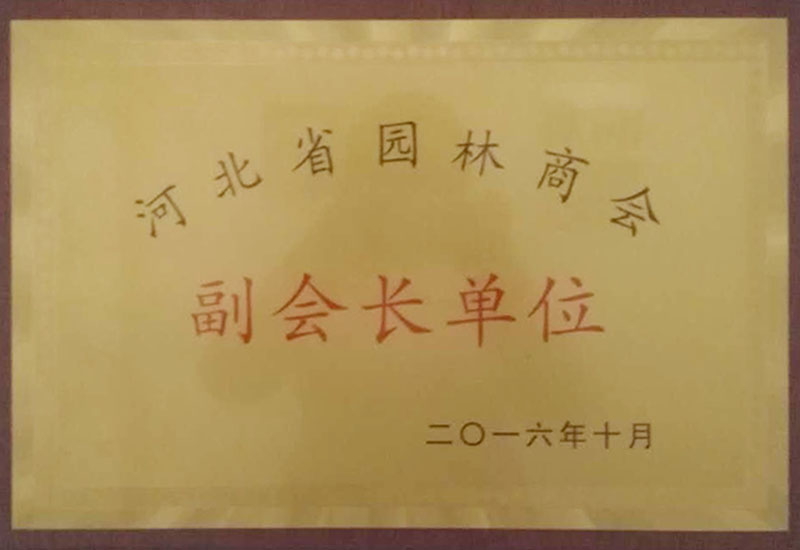 河北省园林商会
副会长单位
二〇一六年十月